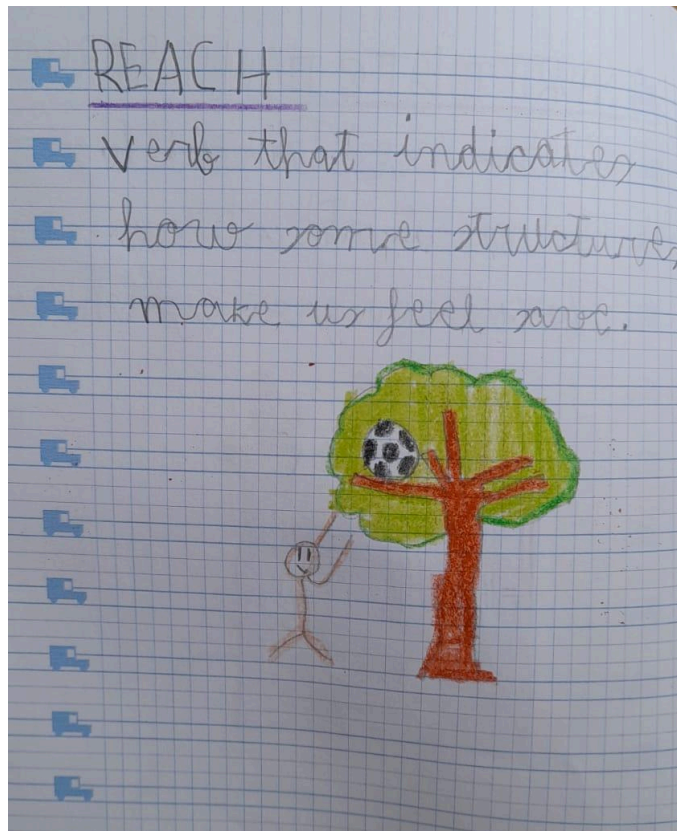 REACH
verb that indicates
how some structures
make us feel save.